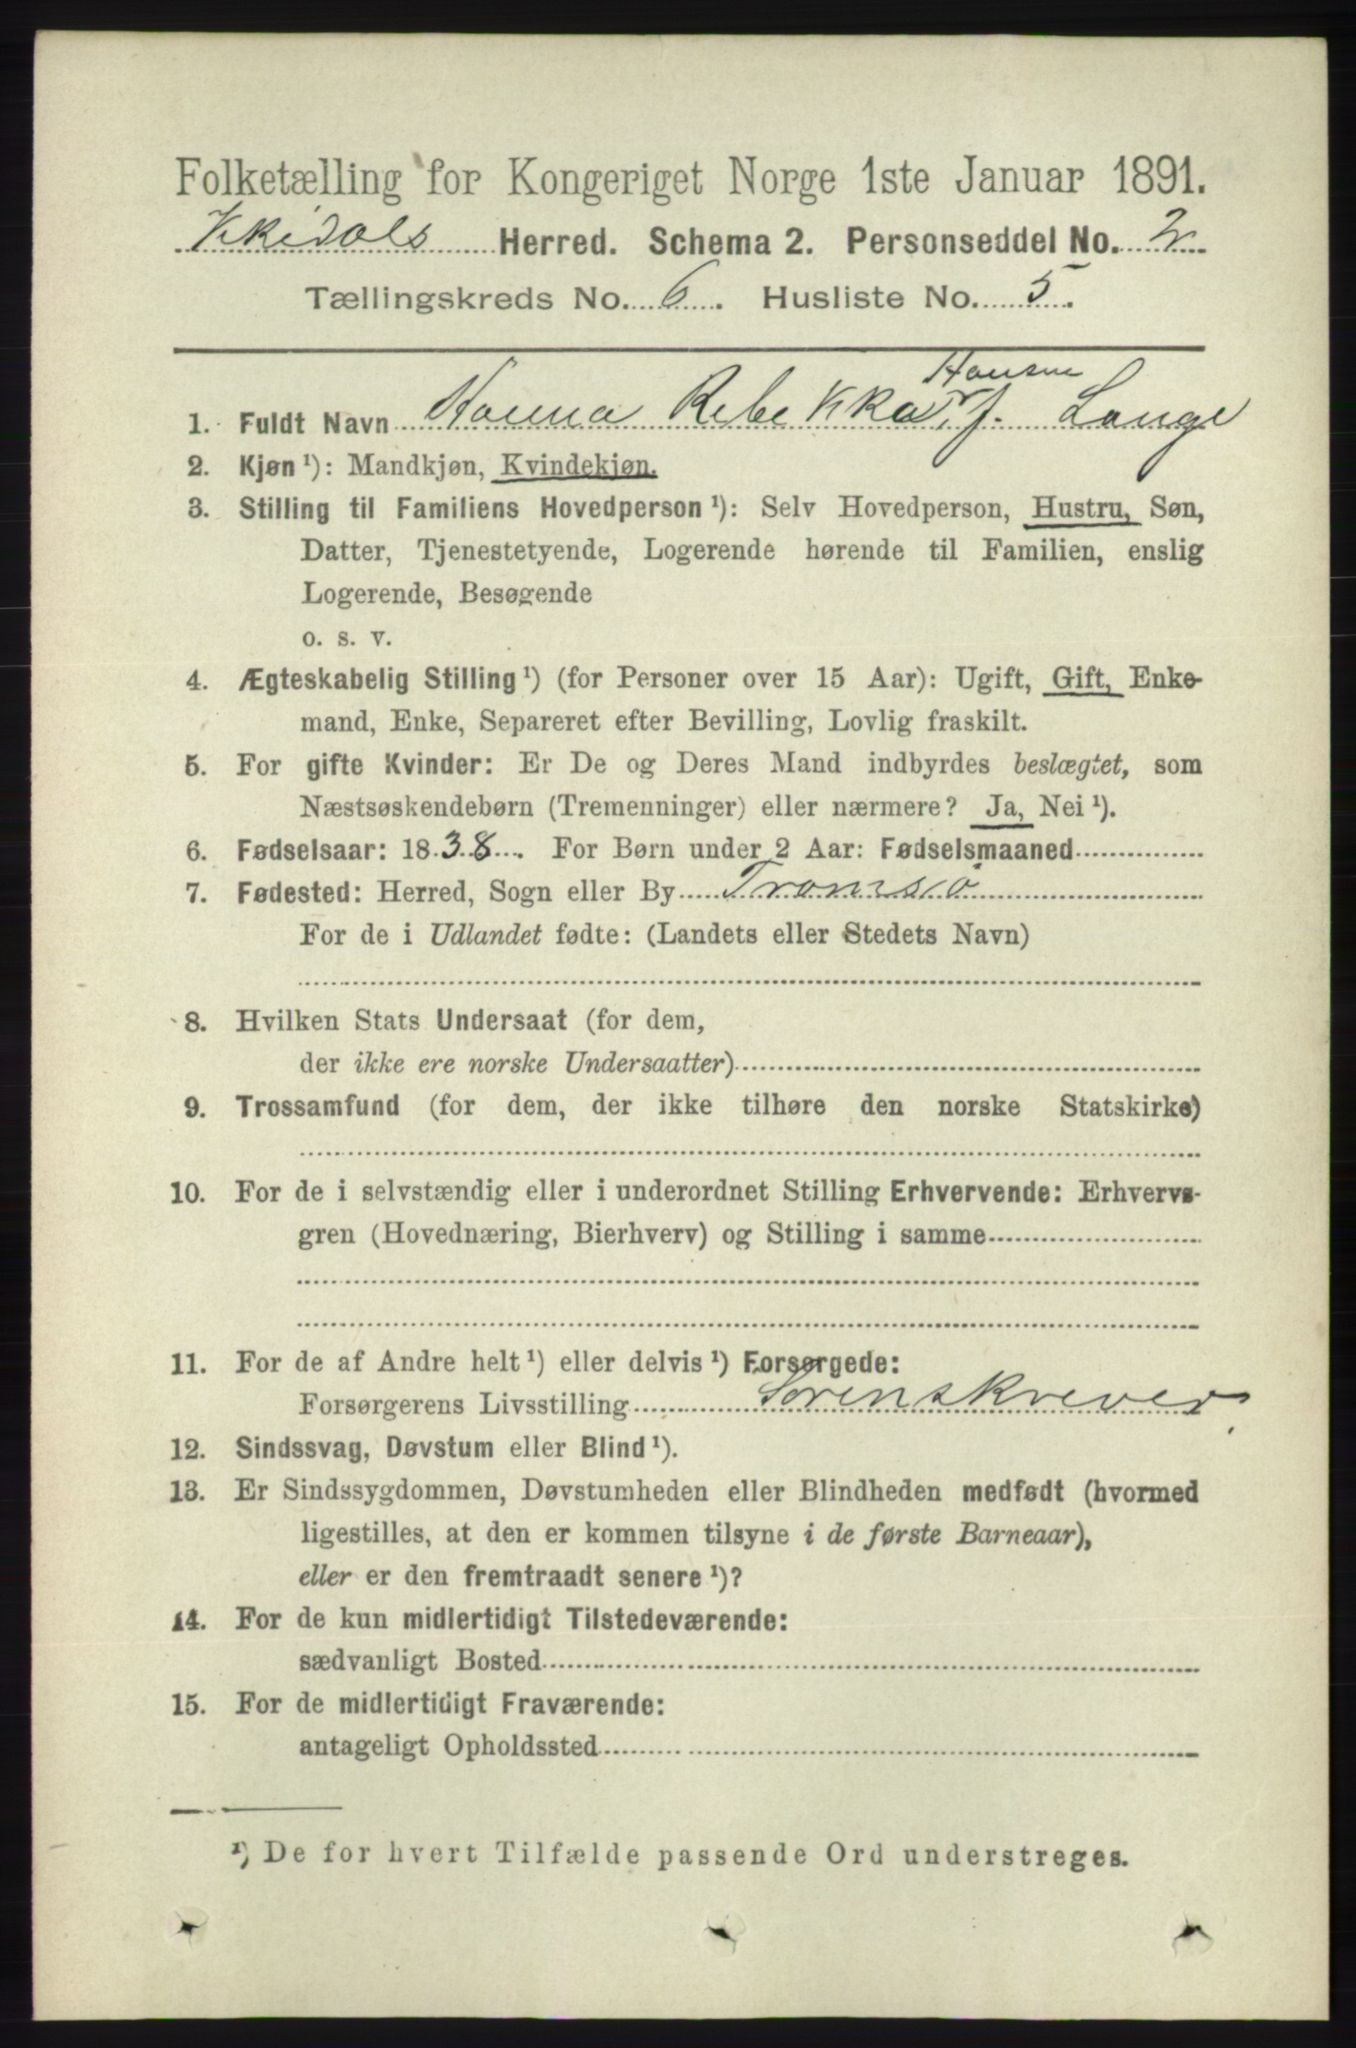 Folketælling for Kongeriget Norge 1ste Januar 1891.
Herred. Schema 2. Personseddel No. 2
Tællingskreds No. 6. Husliste No. 5.
Hansen
1. Fuldt Navn Hanna Rebekka f. Lange
2. Kjøn ¹): Mandkjøn, Kvindekjøn.
3. Stilling til Familiens Hovedperson ¹): Selv Hovedperson, Hustru, Søn,
Datter, Tjenestetyende, Logerende hørende til Familien, enslig
Logerende, Besøgende
o. s. v.
4. Ægteskabelig Stilling ¹) (for Personer over 15 Aar): Ugift, Gift, Enke-
mand, Enke, Separeret efter Bevilling, Lovlig fraskilt.
5. For gifte Kvinder: Er De og Deres Mand indbyrdes beslægtet, som
Næstsøskendebørn (Tremenninger) eller nærmere? Ja, Nei ¹).
6. Fødselsaar: 1838. For Børn under 2 Aar: Fødselsmaaned
7. Fødested: Herred, Sogn eller By Tromsø
For de i Udlandet fødte: (Landets eller Stedets Navn)
8. Hvilken Stats Undersaat (for dem,
der ikke ere norske Undersaatter)
9. Trossamfund (for dem, der ikke tilhøre den norske Statskirke)
10. For de i selvstændig eller i underordnet Stilling Erhvervende: Erhvervs-
gren (Hovednæring, Bierhverv) og Stilling i samme
11. For de af Andre helt ¹) eller delvis ¹) Forsørgede:
Forsørgerens Livsstilling Sorenskrever
12. Sindssvag, Døvstum eller Blind ¹).
13. Er Sindssygdommen, Døvstumheden eller Blindheden medfødt (hvormed
ligestilles, at den er kommen tilsyne i de første Barneaar),
eller er den fremtraadt senere ¹)?
14. For de kun midlertidigt Tilstedeværende:
sædvanligt Bosted
15. For de midlertidigt Fraværende:
antageligt Opholdssted
¹) De for hvert Tilfælde passende Ord understreges.